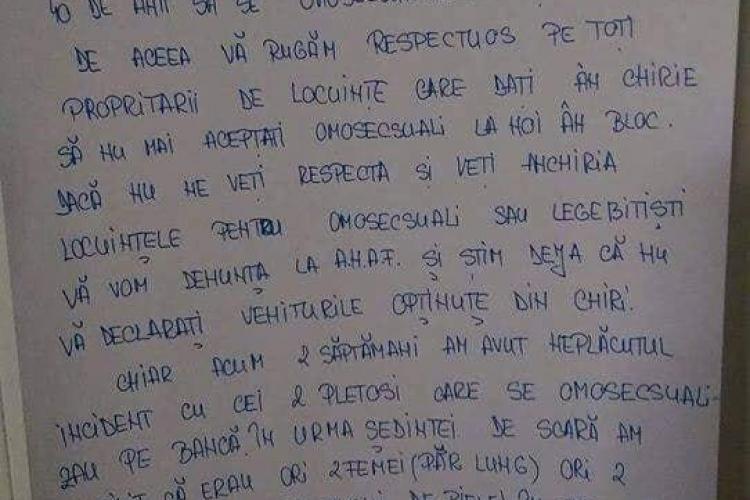 40 DE ANI SĂ SE
DE ACEEA VĂ RUGĂM RESPECTUOS PE TOȚI
PROPRITARII DE LOCUINȚE CARE DATI ÂN CHIRIE
SĂ NU MAI ACEPTAȚI OMOSECSUALI LA NOI ÂN BLOC.
DACĂ NU NE VEȚI RESPECTA SI VEȚI ÂNCHIRIA
LOCUINȚELE PENTRU OMOSECSUALI SAU LEGEBITIȘTI
VĂ VOM DENUNȚA LA A.N.A.F. ȘI ȘTIM DEJA CĂ NU
VĂ DECLARAȚI VENITURILE OPȚINUTE DIN CHIRI.
CHIAR ACUM 2 SĂPTĂMANI AM AVUT NEPLĂCUTUL
INCIDENT CU CEI 2 PLETOSI CARE SE OMOSECSUALI-
ZAU PE BANCĂ. ÎN URMA ȘEDINTEI DE SCARĂ AM
CĂ ERAU ORI 2 FEMEI (PĂR LUNG) ORI 2
DE PIELE)